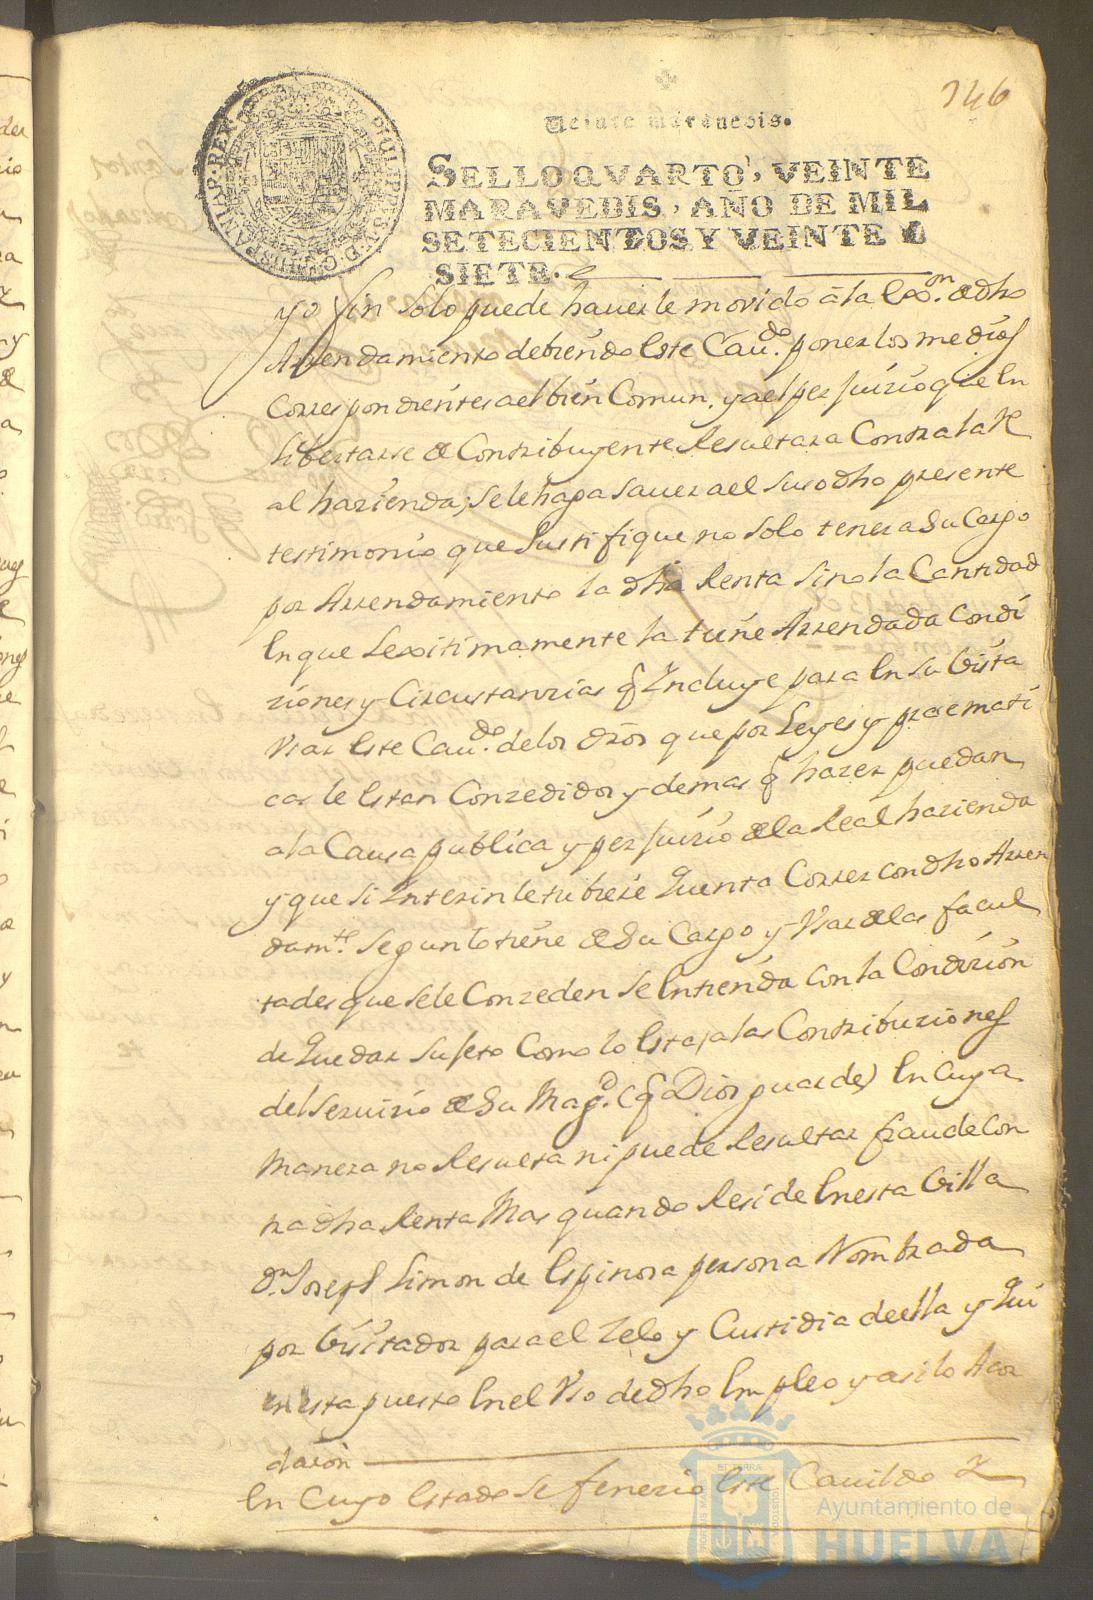 346
Veinte maravedis.
SELLO QVARTO, VEINTE
MARAVEDIS, AÑO DE MIL
SETECIENTOS Y VEINTE Y
SIETE.
PHILIPPUS V D G HISPANIAR REX
yo fin solo puede haverle movido â la exon. de dho
Arrendamiento debiendo este Cavdo. poner los medios
Correspondientes a el bien Comun, y a el perjuizio que en
libertarse de Contribuyente Resultara Contra la Re
al hazienda; se le haga saver a el susodho presente
testimonio que Justifique no solo tener a su Cargo
por Arrendamiento la dha Renta sino la Cantidad
en que Lexitimamente la tiene Arrendada Condi
ziones y Circustanzias q Incluye para en su Vista
Vsar este Cavdo. de los dros que por Leyes y pracmati
cas le estan Conzedidos y demas q hazer puedan
a la Causa publica y perjuizio de la Real hazienda
y que si Interin le tubiere Quenta Correr con dho Arren
damto. segun lo tiene de su Cargo y Vsar de las facul
tades que se le Conzeden se entienda con la Condizion
de Quedar sujeto Como lo esta, a las Contribuziones
del servizio de su Magd. (q Dios guarde) en Cuya
manera no Resulta ni puede Resultar fraude Con
tra dha Renta Mas quando Reside en esta Villa
Dn. Joseph Simon de Espinosa persona Nombrada
por Visitador para el Zelo y Custidia de ella y Qui
en esta puesto en el Vso de dho Empleo y asi lo Acor
daron
En Cuyo estado se fenezio este Cavildo
Ayuntamiento de
HUELVA